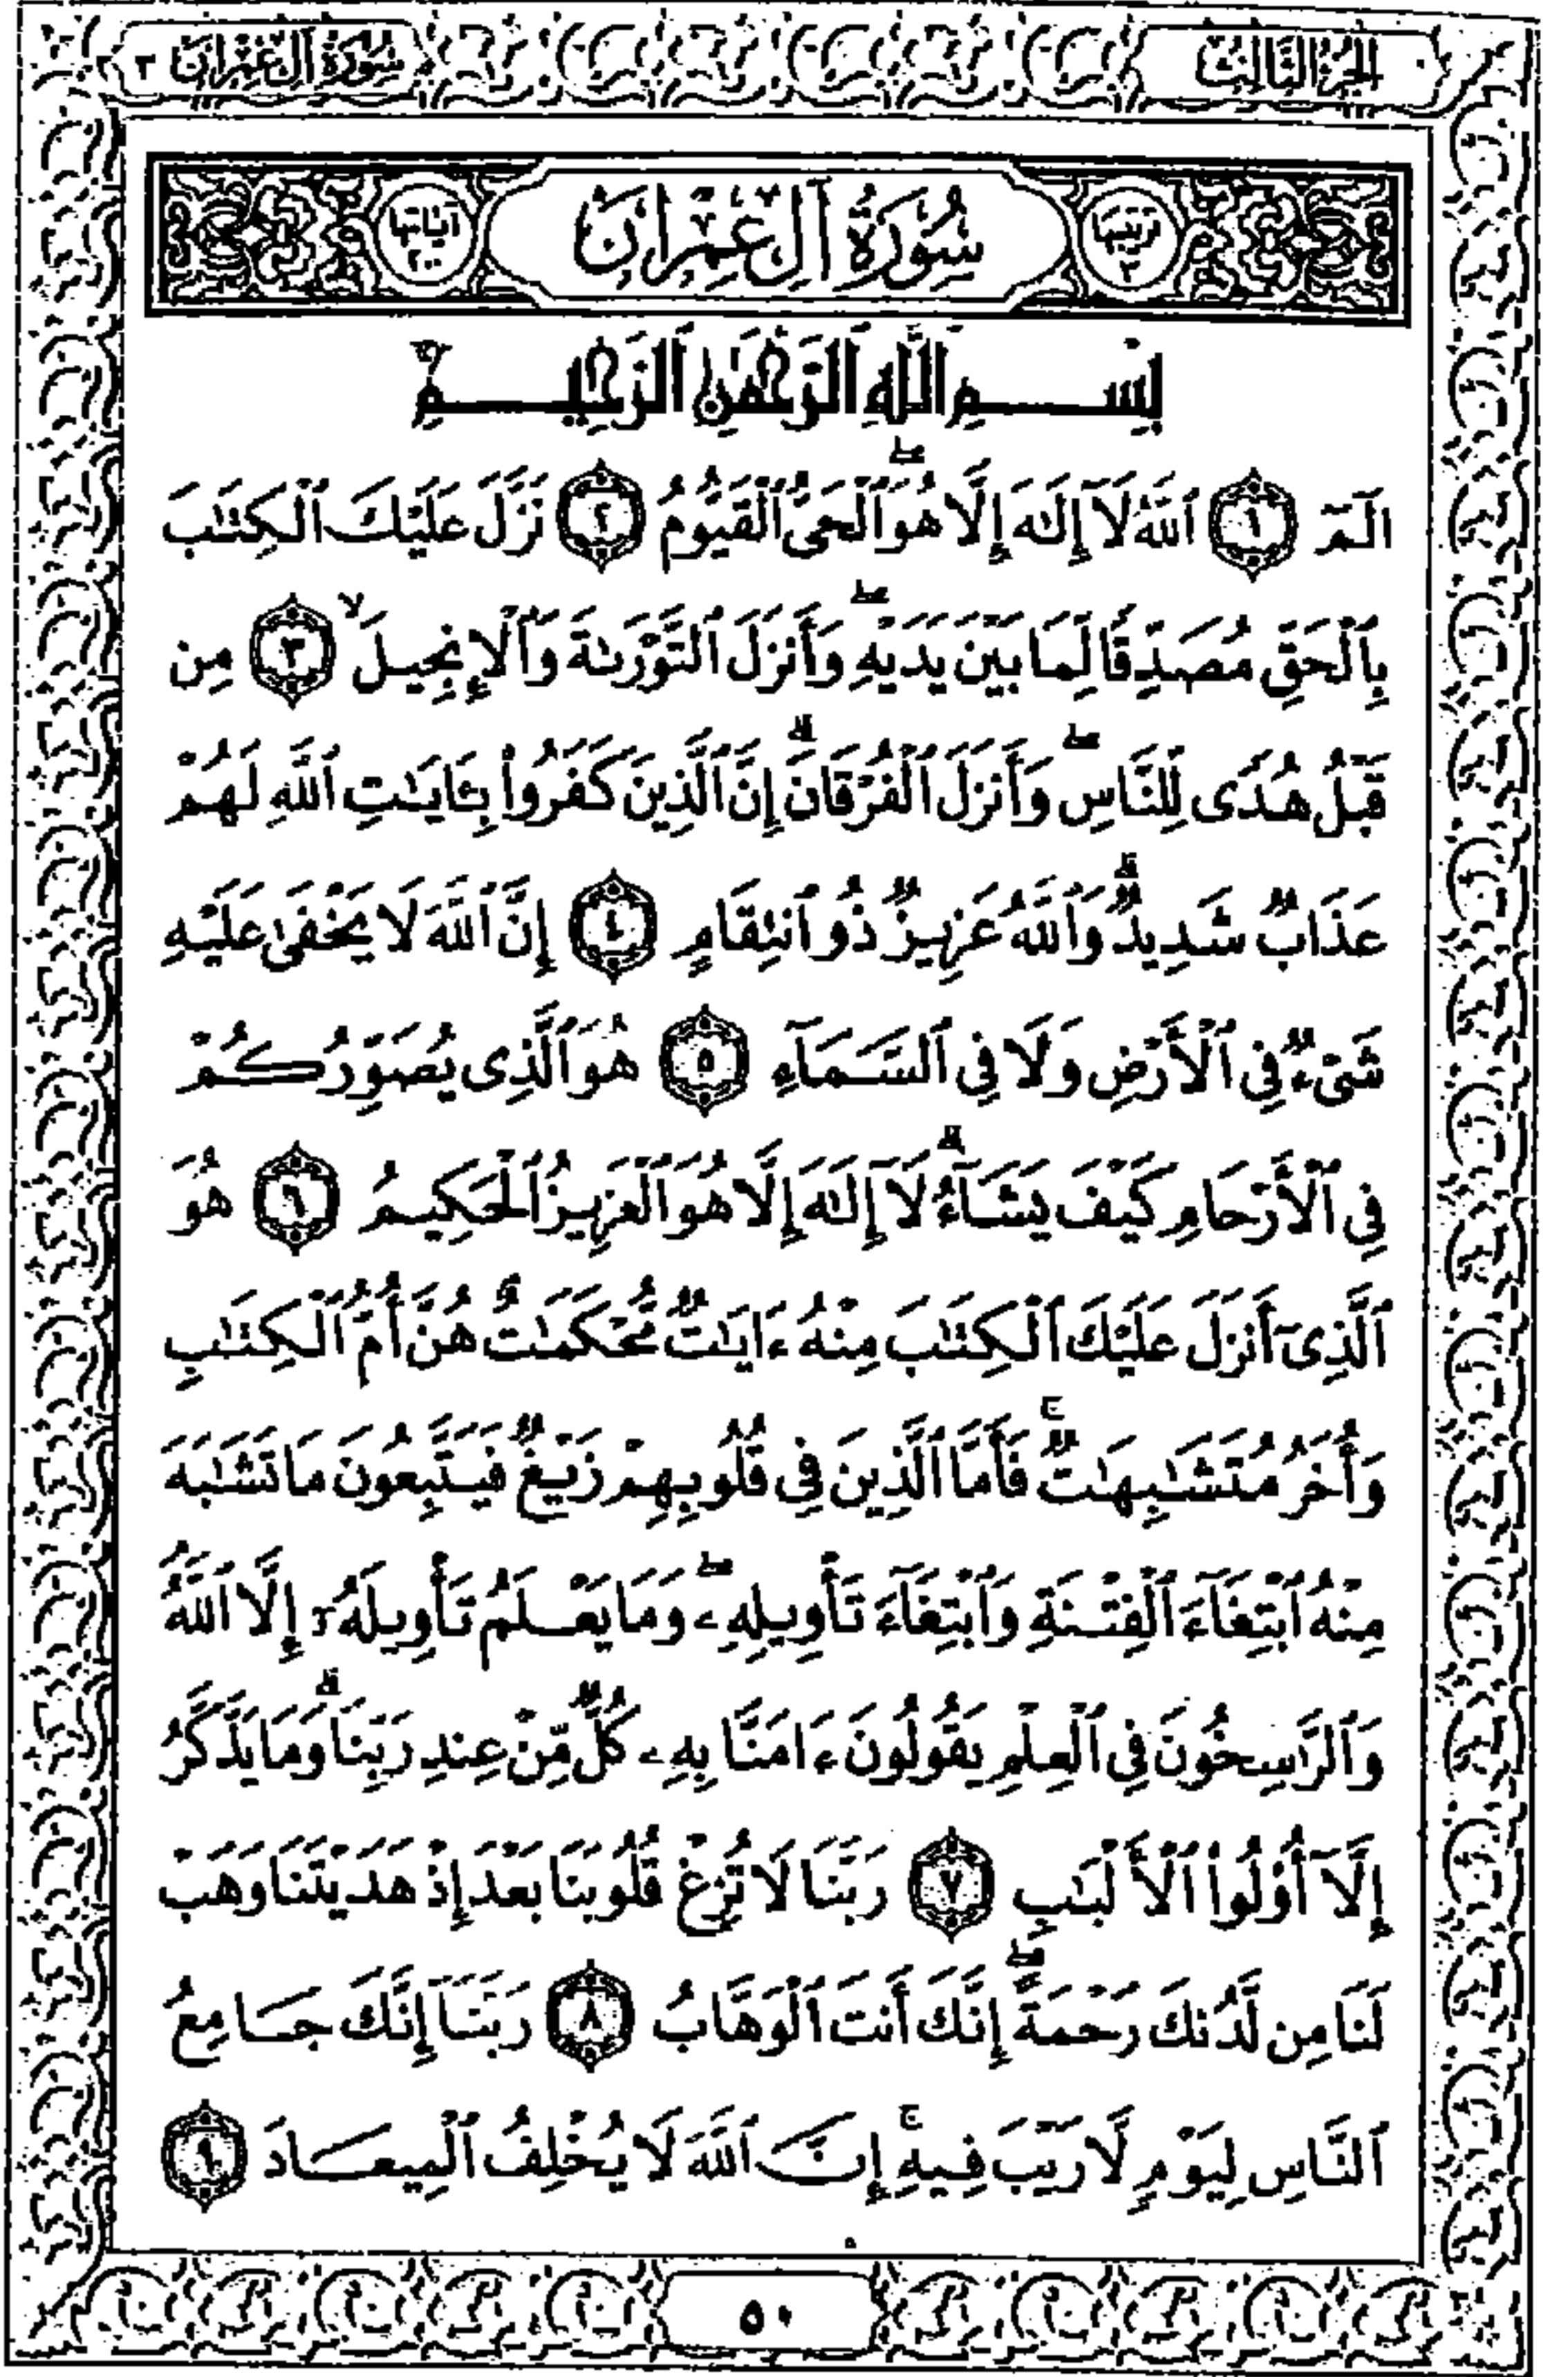 الجزء الثالث
سورة آل عمران ٣
ترتيبها ٣
سُورَةُ آلِ عِمْرَانَ
آياتها ٢٠٠
بِسْمِ ٱللَّهِ ٱلرَّحْمَٰنِ ٱلرَّحِيمِ
الٓمٓ ١ ٱللَّهُ لَآ إِلَٰهَ إِلَّا هُوَ ۖ ٱلْحَىُّ ٱلْقَيُّومُ ٢ نَزَّلَ عَلَيْكَ ٱلْكِتَٰبَ
بِٱلْحَقِّ مُصَدِّقًا لِّمَا بَيْنَ يَدَيْهِ ۖ وَأَنزَلَ ٱلتَّوْرَىٰةَ وَٱلْإِنجِيلَ ۙ ٣ مِن
قَبْلُ هُدًى لِّلنَّاسِ ۖ وَأَنزَلَ ٱلْفُرْقَانَ ۗ إِنَّ ٱلَّذِينَ كَفَرُوا۟ بِـَٔايَٰتِ ٱللَّهِ لَهُمْ
عَذَابٌ شَدِيدٌ ۗ وَٱللَّهُ عَزِيزٌ ذُو ٱنتِقَامٍ ٤ إِنَّ ٱللَّهَ لَا يَخْفَىٰ عَلَيْهِ
شَىْءٌ فِى ٱلْأَرْضِ وَلَا فِى ٱلسَّمَآءِ ٥ هُوَ ٱلَّذِى يُصَوِّرُكُمْ
فِى ٱلْأَرْحَامِ كَيْفَ يَشَآءُ ۗ لَآ إِلَٰهَ إِلَّا هُوَ ٱلْعَزِيزُ ٱلْحَكِيمُ ٦ هُوَ
ٱلَّذِىٓ أَنزَلَ عَلَيْكَ ٱلْكِتَٰبَ مِنْهُ ءَايَٰتٌ مُّحْكَمَٰتٌ هُنَّ أُمُّ ٱلْكِتَٰبِ
وَأُخَرُ مُتَشَٰبِهَٰتٌ ۚ فَأَمَّا ٱلَّذِينَ فِى قُلُوبِهِمْ زَيْغٌ فَيَتَّبِعُونَ مَا تَشَٰبَهَ
مِنْهُ ٱبْتِغَآءَ ٱلْفِتْنَةِ وَٱبْتِغَآءَ تَأْوِيلِهِۦ ۖ وَمَا يَعْلَمُ تَأْوِيلَهُۥٓ إِلَّا ٱللَّهُ
وَٱلرَّٰسِخُونَ فِى ٱلْعِلْمِ يَقُولُونَ ءَامَنَّا بِهِۦ كُلٌّ مِّنْ عِندِ رَبِّنَا ۗ وَمَا يَذَّكَّرُ
إِلَّآ أُو۟لُوا۟ ٱلْأَلْبَٰبِ ٧ رَبَّنَا لَا تُزِغْ قُلُوبَنَا بَعْدَ إِذْ هَدَيْتَنَا وَهَبْ
لَنَا مِن لَّدُنكَ رَحْمَةً ۖ إِنَّكَ أَنتَ ٱلْوَهَّابُ ٨ رَبَّنَآ إِنَّكَ جَامِعُ
ٱلنَّاسِ لِيَوْمٍ لَّا رَيْبَ فِيهِ ۚ إِنَّ ٱللَّهَ لَا يُخْلِفُ ٱلْمِيعَادَ ٩
٥٠